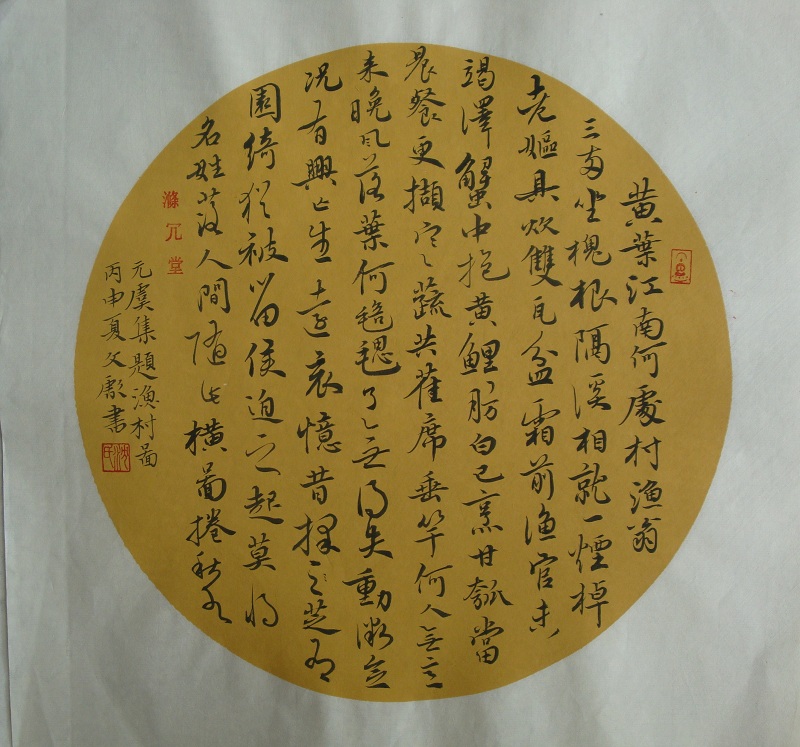 黄葉江南何處村漁翁
三两坐槐根隔溪相就一煙棹
老嫗具炊雙瓦盆霜前漁官未
竭澤蟹中抱黄鯉肪白已烹甘瓠當
晨餐更擷寒蔬共萑席垂竿何人無意
來晚風落葉何毰毸了無得失動微念
況有興亡生遠哀憶昔採芝有
園綺猶被留侯迫之起莫將
名姓落人間隨此橫圖捲秋水
滌冗堂
元虞集題漁村圖
丙申夏文獻書